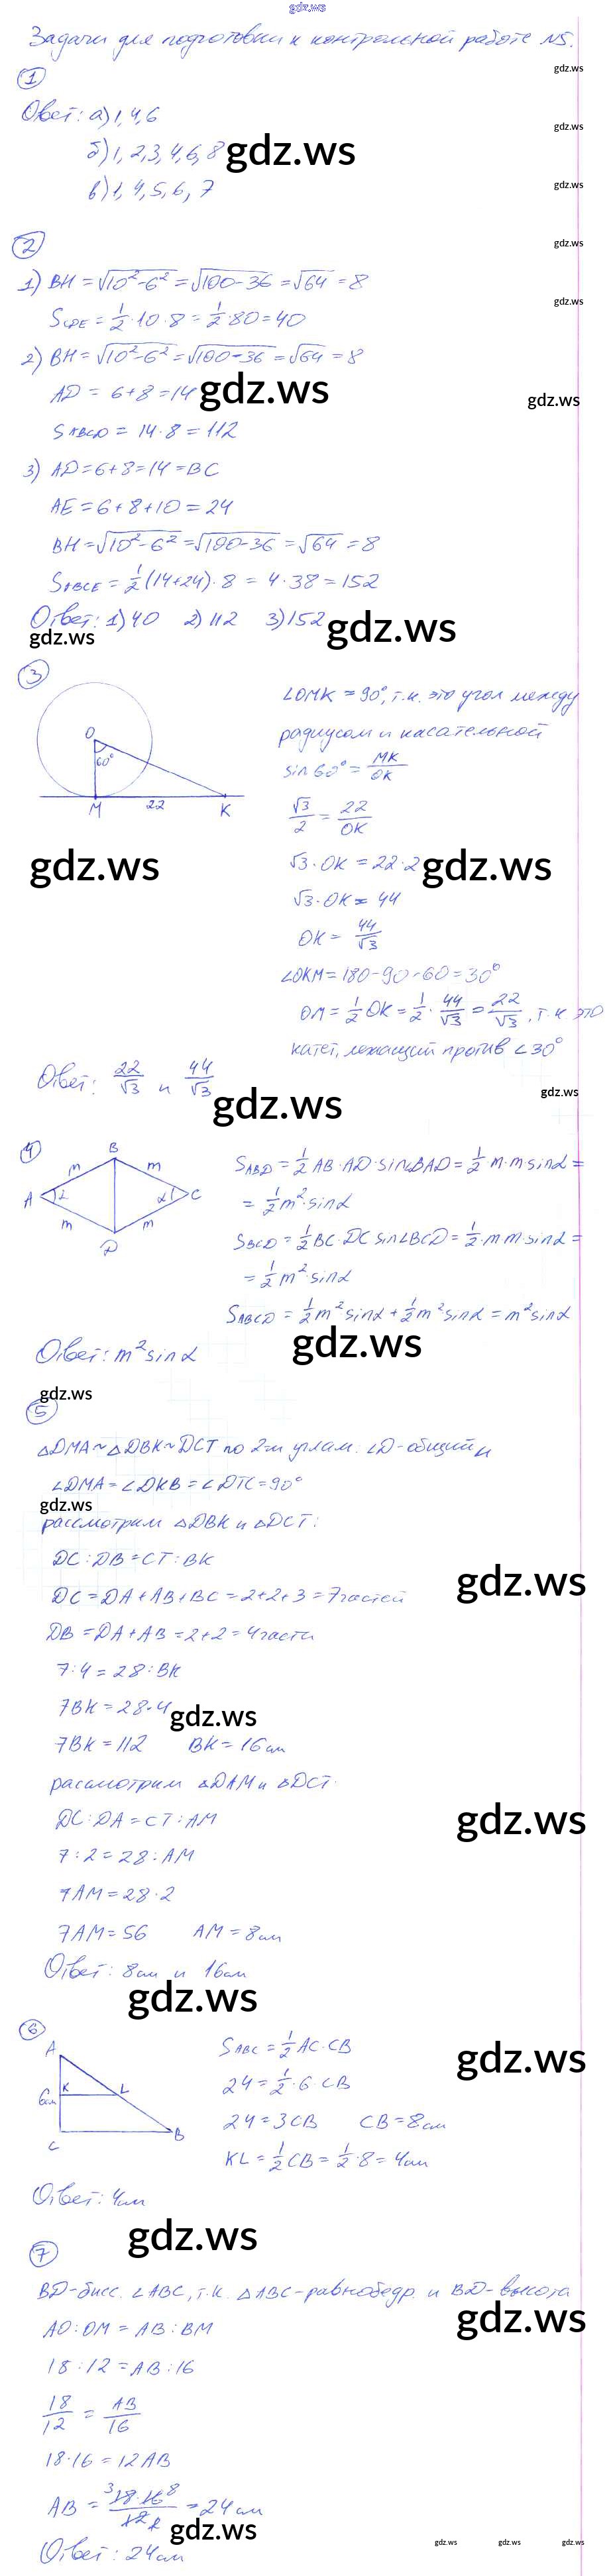 gdz.ws
Задачи для подготовки к контрольной работе №5.
gdz.ws
1
Ответ: а) 1, 4, 6
gdz.ws
б) 1, 2, 3, 4, 6, 8 gdz.ws
в) 1, 4, 5, 6, 7
gdz.ws
2
gdz.ws
1) BH = √10²-6² = √100-36 = √64 = 8
gdz.ws
S CDE = 1/2 · 10 · 8 = 1/2 · 80 = 40
2) BH = √10²-6² = √100-36 = √64 = 8
AD = 6+8 = 14 gdz.ws
gdz.ws
S ABCD = 14 · 8 = 112
3) AD = 6+8 = 14 = BC
AE = 6+8+10 = 24
BH = √10²-6² = √100-36 = √64 = 8
S ABCE = 1/2 (14+24) · 8 = 4 · 38 = 152
Ответ: 1) 40 2) 112 3) 152 gdz.ws
gdz.ws
3
O
60°
M 22 K
∠OMK = 90°, т.к. это угол между
радиусом и касательной
sin 60° = MK/OK
√3/2 = 22/OK
√3 · OK = 22 · 2
gdz.ws gdz.ws
√3 · OK = 44
OK = 44/√3
∠OKM = 180-90-60 = 30°
OM = 1/2 OK = 1/2 · 44/√3 = 22/√3, т.к это
катет, лежащий против ∠30°
Ответ: 22/√3 и 44/√3
gdz.ws
gdz.ws
4
B
m m
A α α C
m m
D
S ABD = 1/2 AB · AD · sin∠BAD = 1/2 · m · m sinα =
= 1/2 m² · sinα
S BCD = 1/2 BC · DC sin∠BCD = 1/2 · m · m · sinα =
= 1/2 m² · sinα
S ABCD = 1/2 m² sinα + 1/2 m² sinα = m² sinα
Ответ: m² sinα gdz.ws
gdz.ws
5
△DMA ~ △DBK ~ DCT по 2-м углам. ∠D-общий и
∠DMA = ∠DKB = ∠DTC = 90°
gdz.ws
рассмотрим △DBK и △DCT:
DC : DB = CT : BK
gdz.ws
DC = DA + AB + BC = 2+2+3 = 7частей
DB = DA + AB = 2+2 = 4части
7 : 4 = 28 : BK
7BK = 28 · 4
gdz.ws
7BK = 112 BK = 16см
рассмотрим △DAM и △DCT.
DC : DA = CT : AM
gdz.ws
7 : 2 = 28 : AM
7AM = 28 · 2
7AM = 56 AM = 8см
Ответ: 8см и 16см
gdz.ws
6
A
K L
6см
C B
S ABC = 1/2 AC · CB
24 = 1/2 · 6 · CB
gdz.ws
24 = 3CB CB = 8см
KL = 1/2 CB = 1/2 · 8 = 4см
Ответ: 4см
gdz.ws
7
BD-бисс. ∠ABC, т.к. △ABC-равнобедр. и BD-высота
gdz.ws
AO : OM = AB : BM
18 : 12 = AB : 16
18/12 = AB/16
18 · 16 = 12AB
AB = 18·16/12 = 24см
gdz.ws
gdz.ws gdz.ws gdz.ws
Ответ: 24см